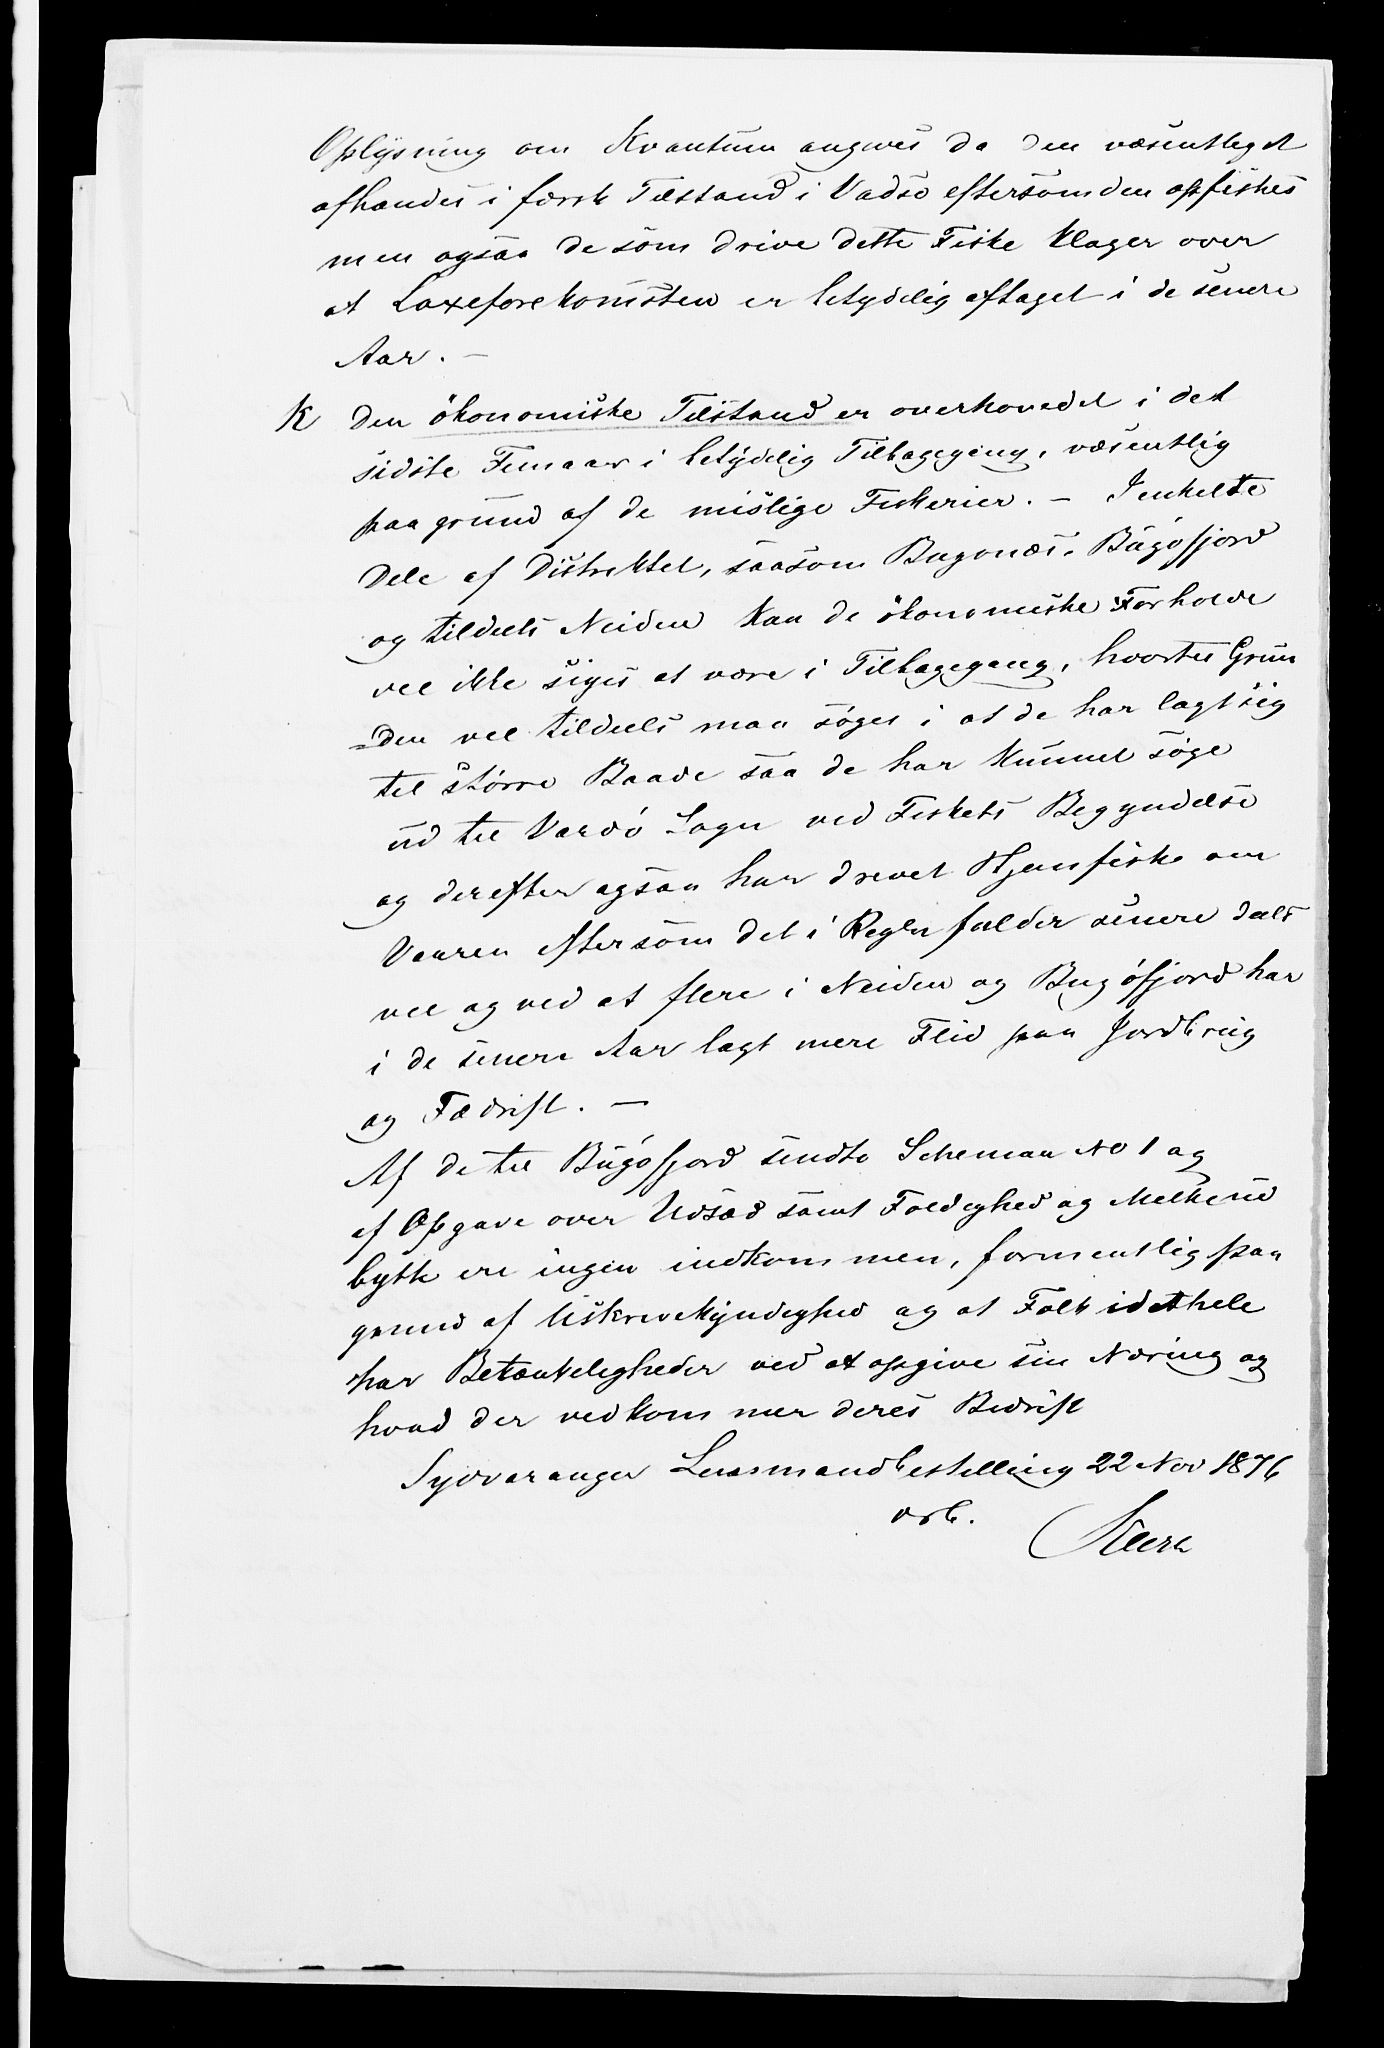 Oplysning om Kvantum angives da den væsentligst
afhændes i fersk Tilstand i Vadsø eftersom den opfiskes
men ogsaa de som drive dette Fiske klager over
at Laxeforekomsten er betydelig aftaget i de senere
Aar. —
K Den ökonomiske Tilstand er overhovedet i det
sidste Femaar i betydelig Tilbagegang, væsentlig
paa grund af de mislige Fiskerier. — I enkelte
Dele af Distriktet, saasom Bugønæs, Bugøfjord
og tildeels Neiden kan de ökonomiske Forholde
vel ikke siges at være i Tilbagegang, hvortil Grun
=den vel tildeels maa søges i at de har lagt sig
til større Baade saa de har kunnet søge
ud til Vardö Sogn ved Fiskets Begyndelse
og derefter ogsaa har drevet Hjemfiske om
Vaaren eftersom det i Reglen falder senere dels
vel og ved at flere i Neiden og Bugøfjord har
i de senere Aar lagt mere Flid paa Jordbrug
og Fædrift. —
Af de til Bugøfjord sendte Schemaa No 1 og
af Opgave over Udsæd samt Foldighed og Melkeud
bytte ere ingen indkommen, formentlig paa
grund af Uskrivekyndighed og at Folk idethele
har Betænkeligheder ved at opgive sin Næring og
hvad der vedkommer deres Bedrift
Sydvaranger Lensmandbestilling 22 Nov 1876
ærb.
Klerk